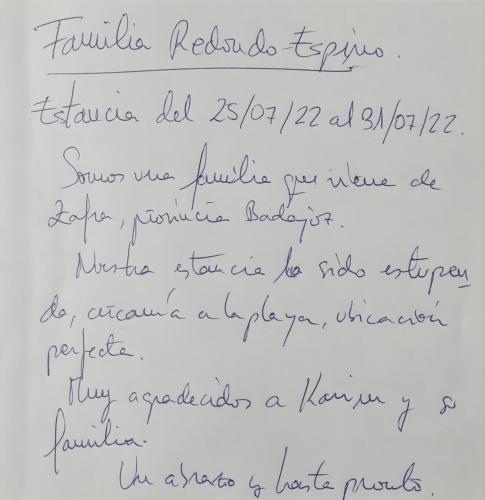 Familia Redondo-Espino.
Estancia del 25/07/22 al 31/07/22.
Somos una familia que viene de
Zafra, provincia Badajoz.
Nuestra estancia ha sido estupen
da, cercanía a la playa, ubicación
perfecta.
Muy agradecidos a Karim y su
familia.
Un abrazo y hasta pronto.